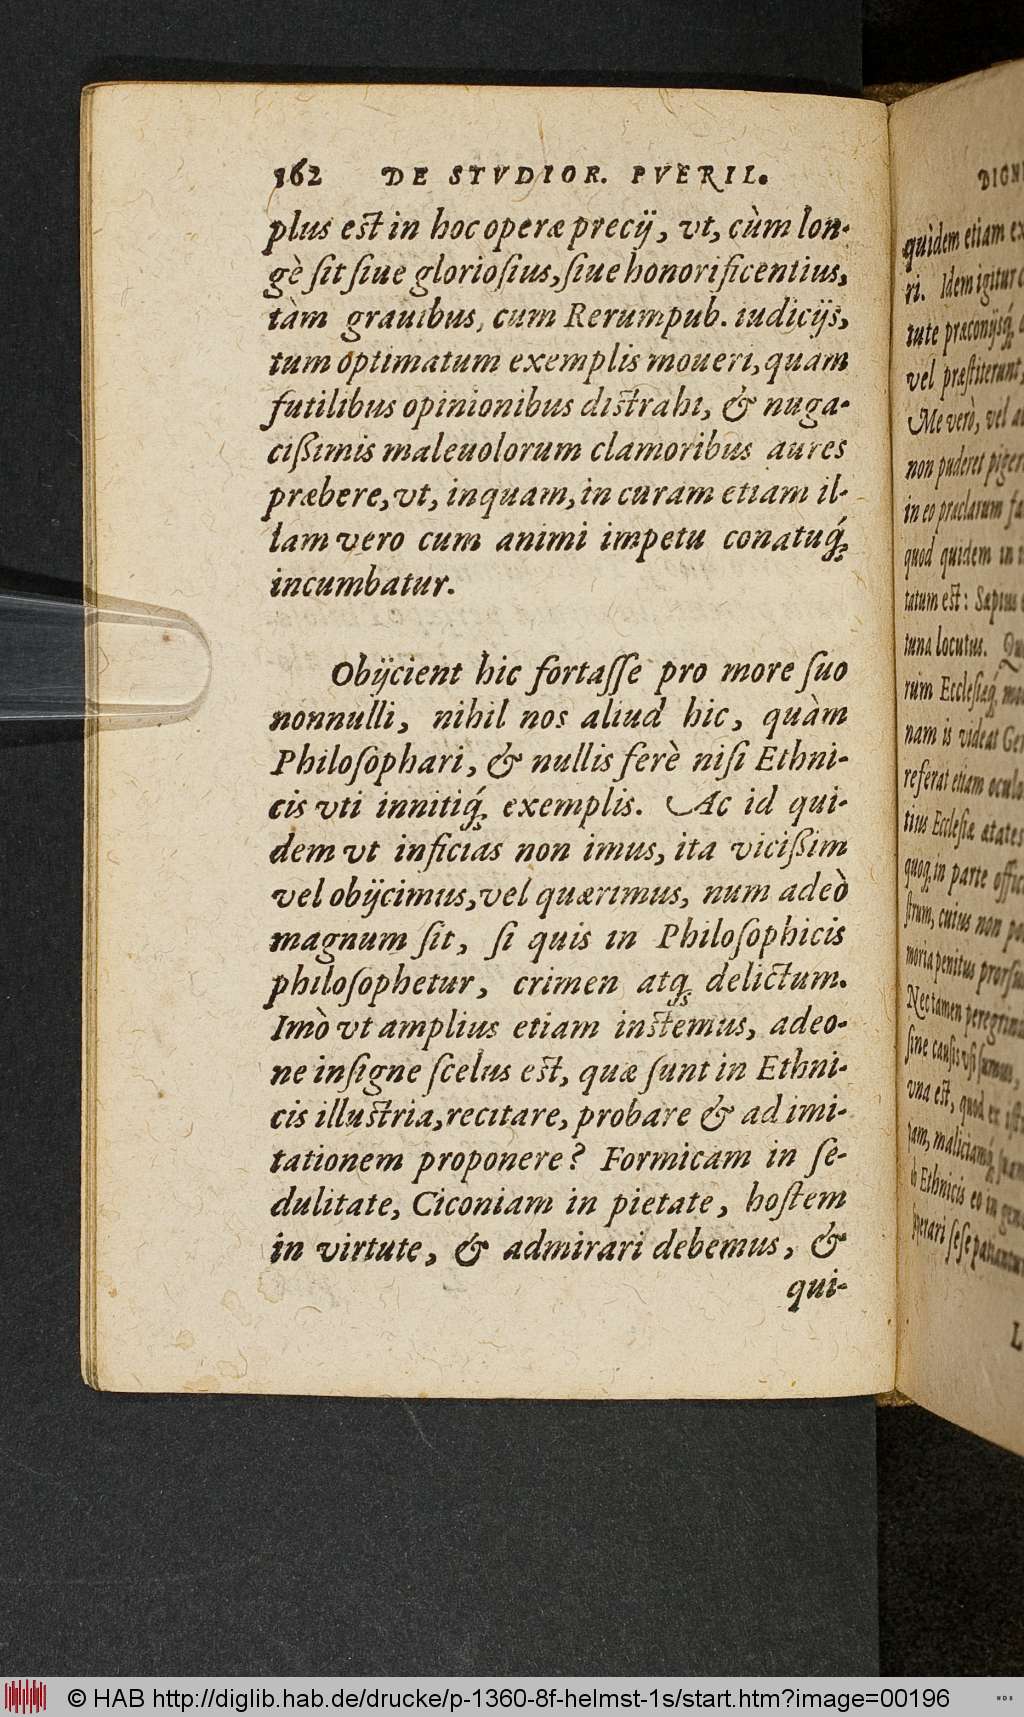 162 DE STVDIOR. PVERIL.
plus est in hoc operæ precij, vt, cùm lon-
gè ſit ſiue glorioſius, ſiue honorificentius,
tàm grauibus, cum Rerumpub. iudicijs,
tum optimatum exemplis moueri, quam
futilibus opinionibus distrahi, & nuga-
cißimis maleuolorum clamoribus aures
præbere, vt, inquam, in curam etiam il-
lam vero cum animi impetu conatuq́;
incumbatur.
Obijcient hic fortaſſe pro more ſuo
nonnulli, nihil nos aliud hic, quàm
Philoſophari, & nullis ferè niſi Ethni-
cis vti innitiq́; exemplis. Ac id qui-
dem vt inficias non imus, ita vicißim
vel obijcimus, vel quærimus, num adeò
magnum ſit, ſi quis in Philoſophicis
philoſophetur, crimen atq; delictum.
Imò vt amplius etiam instemus, adeo-
ne inſigne ſcelus est, quæ ſunt in Ethni-
cis illustria, recitare, probare & ad imi-
tationem proponere? Formicam in ſe-
dulitate, Ciconiam in pietate, hoſtem
in virtute, & admirari debemus, &
qui-
DIGNI
quidem etiam ex
ri. Idem igitur
tute præconijsq́;
vel præſtiterunt,
Me verò, vel
non puderet
in eo præclarum
quod quidem in
tatum est: Sæpius
tuna locutus.
rum Eccleſiæq́;
nam is videat Ger
referat etiam oculo
tius Eccleſiæ ætates
quoq; in parte offic
ſtrum, cuius non
moria penitus prorſus
Nec tamen peregrinis
ſine cauſis vſi ſumus,
vna est, quod ex
pam, maliciamq́;
Ethnicis eo in
perari ſeſe patiantur
L
© HAB http://diglib.hab.de/drucke/p-1360-8f-helmst-1s/start.htm?image=00196